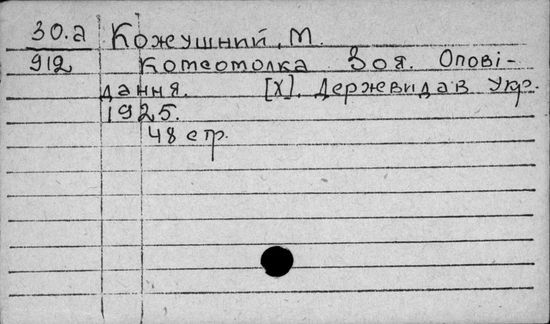 30.а Кожушний, М.
912 Комсомолка Зоя. Опові-
дання. [Х]. Державидав Укр.
1925.
48 стр.